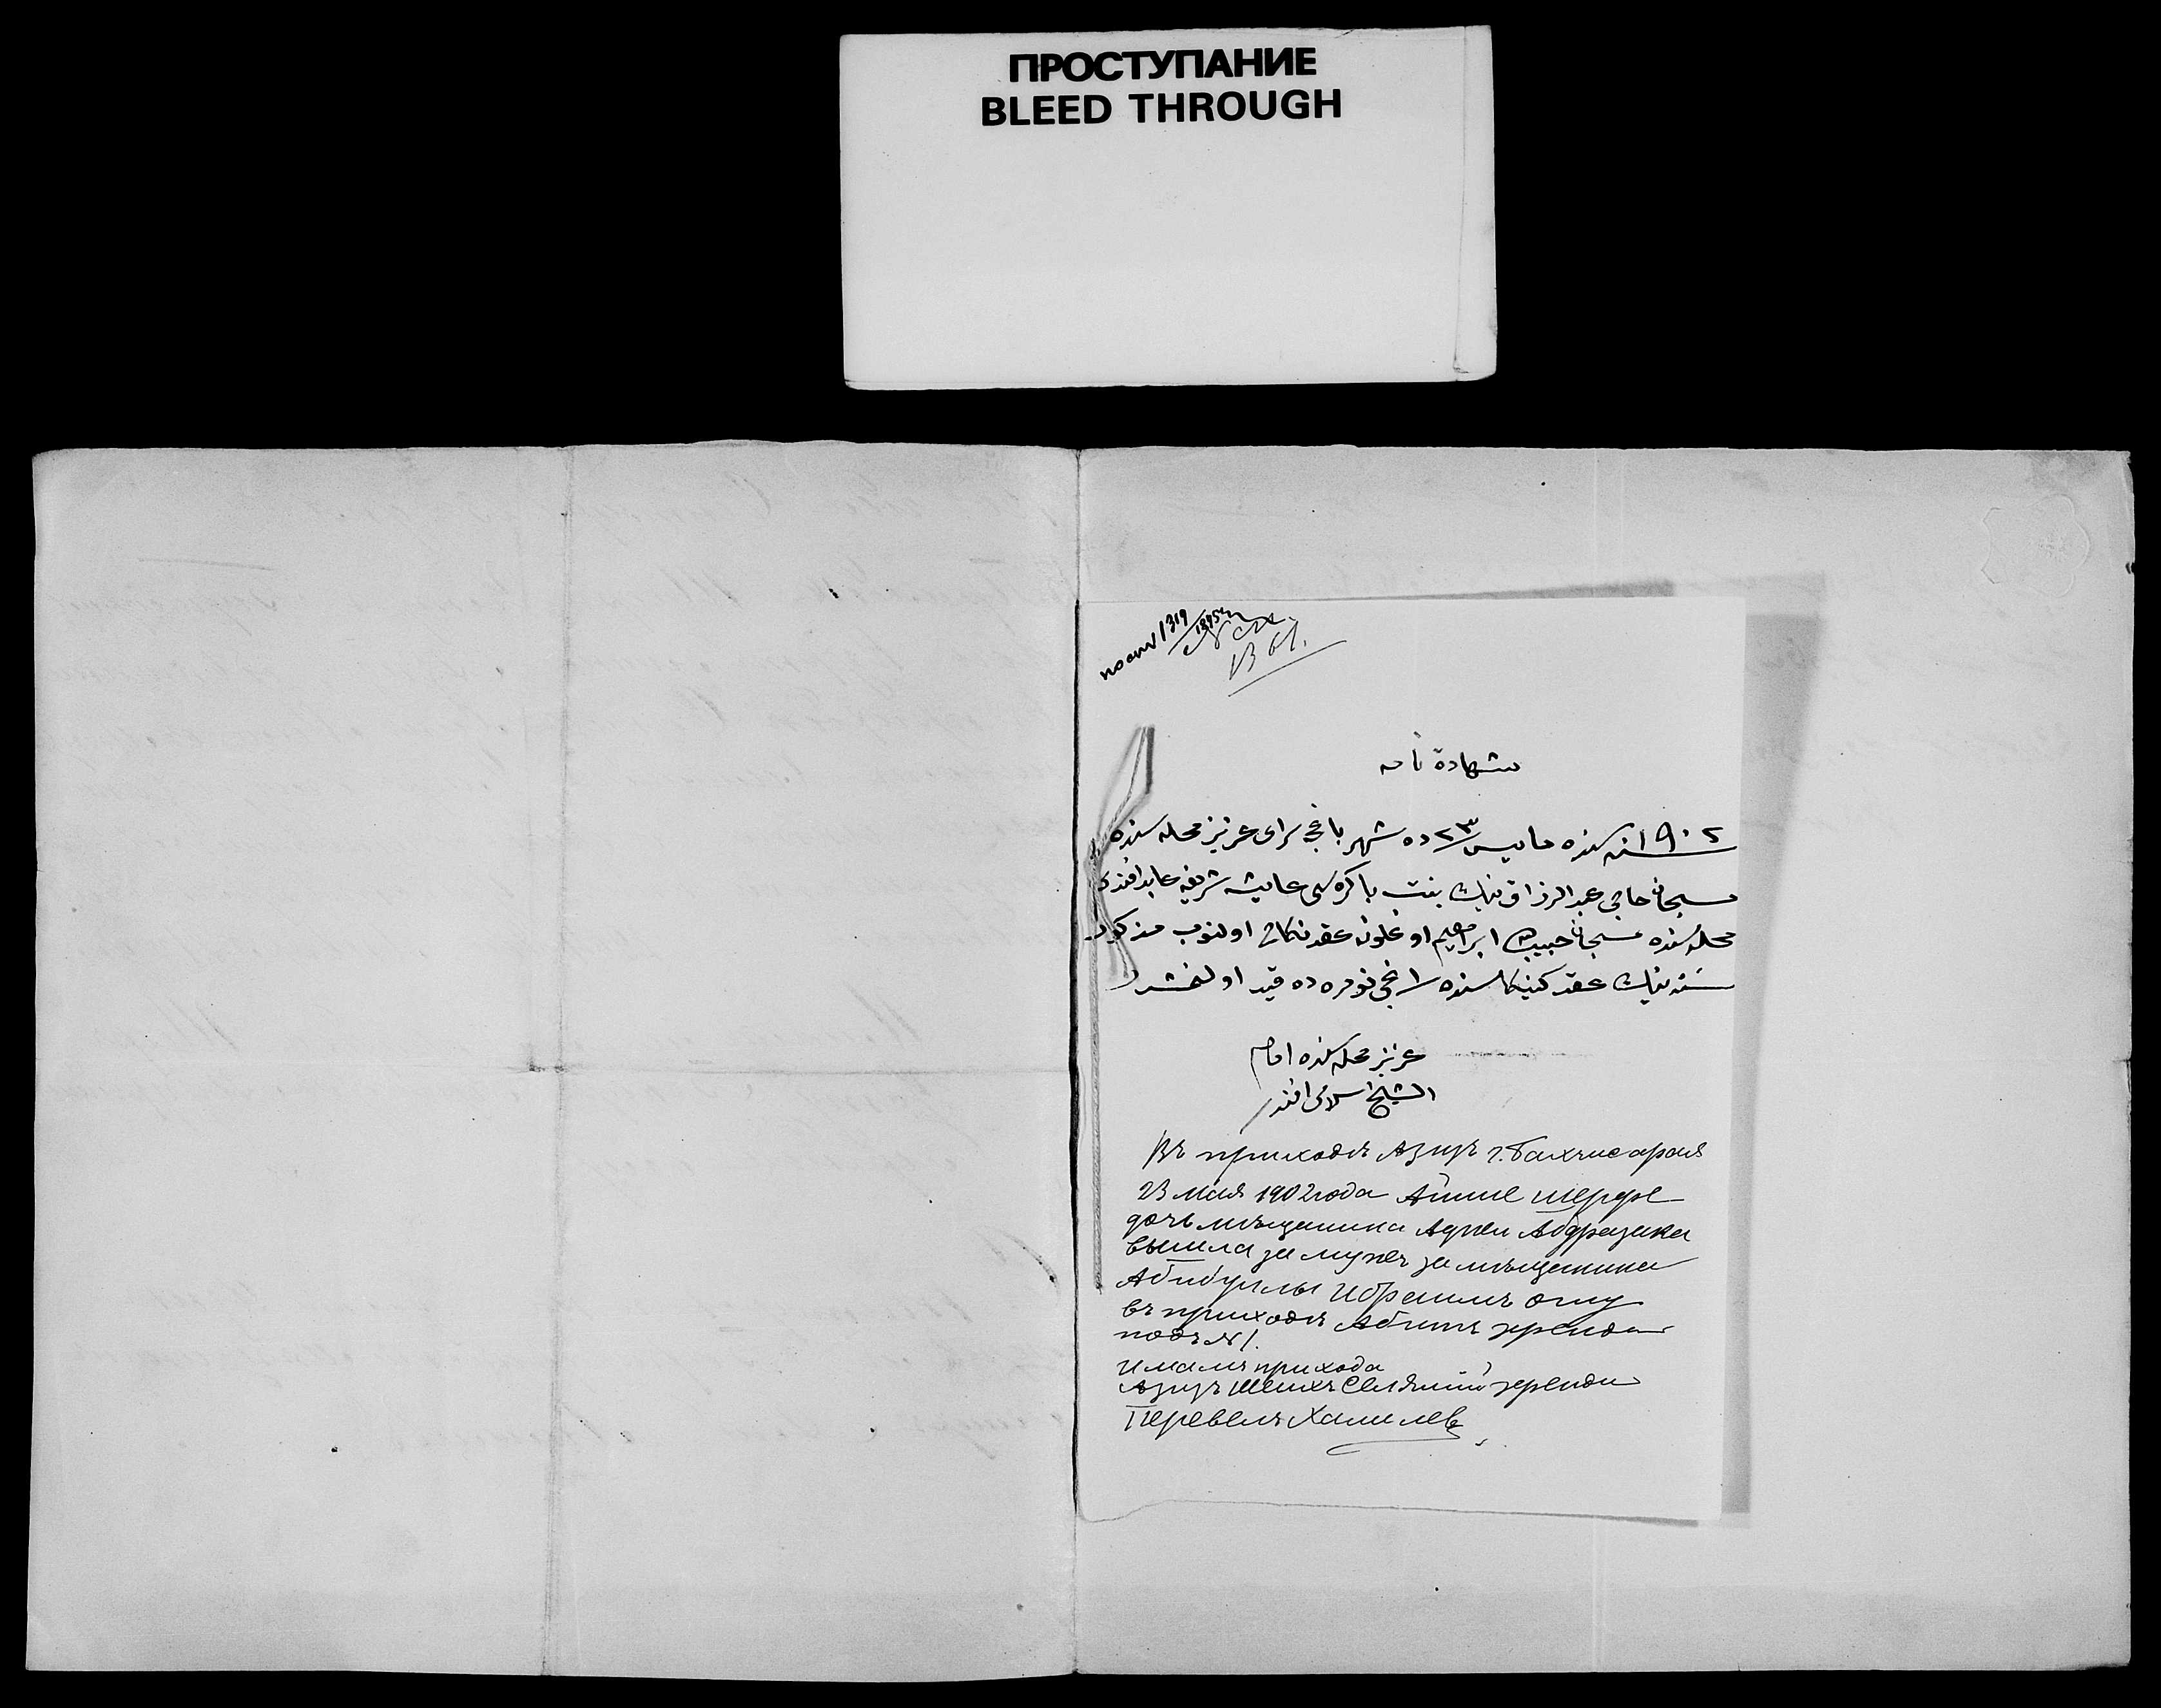 ПРОСТУПАНИЕ
BLEED THROUGH
1319
1895
شهادة نامه
١٩٠٢ نه سنده مايس ٢٣ ده شهر باغچه سراى عزيز محله سنده
مسچان حاجى عبد الرزاق نينك بنت باكره سى عايشه شريفه عابد افندى
محله سنده مسچان حبيب الله ابراهيم اوغلونه عقد نكاح اولنوب مذكور
سنه نينك عقد كنيكاسنده ١ نجى نومره ده قيد اولنمشدر
عزيز محله سنده امام
الشيخ سلامى افندى
Въ приходѣ Азизъ г. Бахчисарая
23 мая 1902 года Айше Шерфе
дочь мѣщанина Аджи Абдразака
вышла за мужъ за мѣщанина
Абибуллы Ибраимъ оглу
въ приходѣ Абитъ эфенди
подъ № 1.
Имамъ прихода
Азизъ Шеихъ Селямий эфенди
Перевелъ Халилев